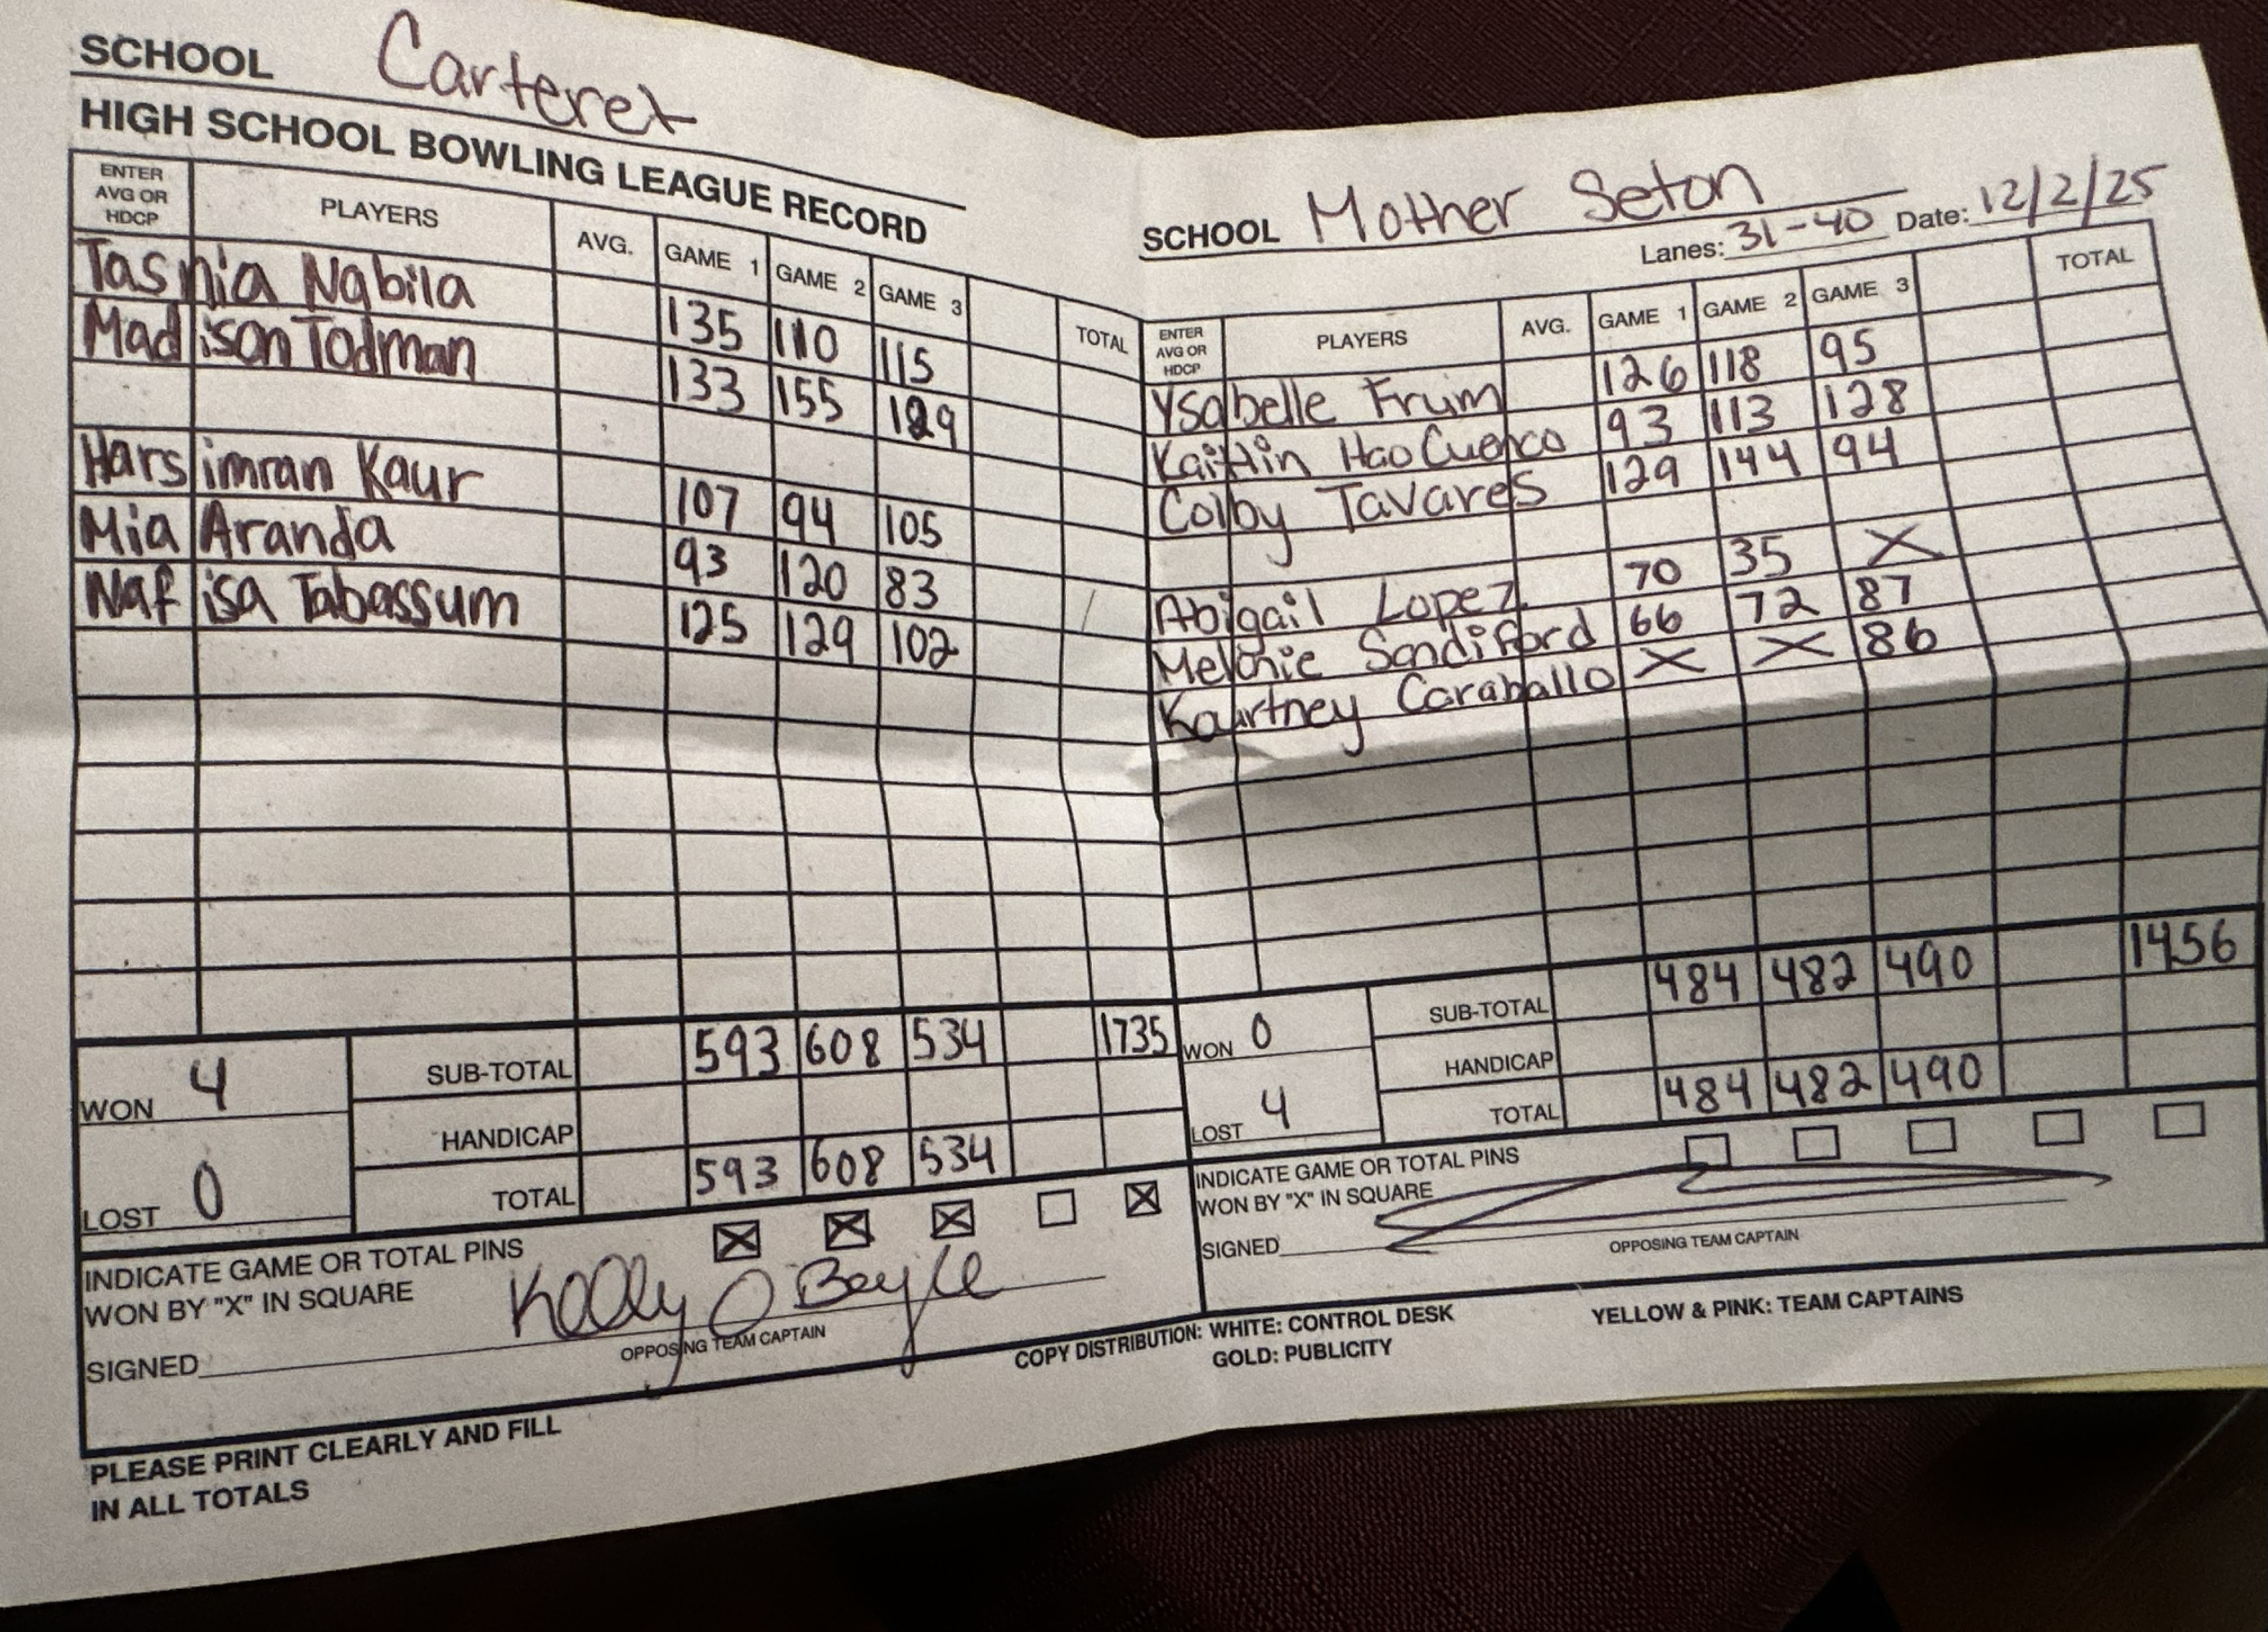 SCHOOL Carteret
HIGH SCHOOL BOWLING LEAGUE RECORD
ENTER AVG OR HDCP PLAYERS AVG. GAME 1 GAME 2 GAME 3 TOTAL
Tasnia Nabila 135 110 115
Madison Todman 133 155 129
Harsimran Kaur 107 94 105
Mia Aranda 93 120 83
Nafisa Tabassum 125 129 102
WON 4
LOST 0
SUB-TOTAL 593 608 534 1735
HANDICAP
TOTAL 593 608 534
INDICATE GAME OR TOTAL PINS
WON BY "X" IN SQUARE X X X X
SIGNED Kelly O Boyle
OPPOSING TEAM CAPTAIN
PLEASE PRINT CLEARLY AND FILL
IN ALL TOTALS
SCHOOL Mother Seton
Lanes: 31-40 Date: 12/2/25
ENTER AVG OR HDCP PLAYERS AVG. GAME 1 GAME 2 GAME 3 TOTAL
Ysabelle Frum 126 118 95
Kaitlin Hao Cuenco 93 113 128
Colby Tavares 129 144 94
Abigail Lopez 70 35 X
Melanie Sandiford 66 72 87
Kourtney Caraballo X X 86
WON 0
LOST 4
SUB-TOTAL 484 482 490 1456
HANDICAP
TOTAL 484 482 490
INDICATE GAME OR TOTAL PINS
WON BY "X" IN SQUARE
SIGNED
OPPOSING TEAM CAPTAIN
COPY DISTRIBUTION: WHITE: CONTROL DESK YELLOW & PINK: TEAM CAPTAINS
GOLD: PUBLICITY